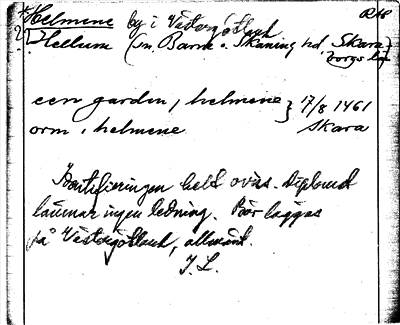 *Helmene by i Västergötland RAp
? Hellum (sn, Barne o. Skåning hd, Skara)
borgs län
een garden, helmene } 17/8 1461
orm i helmene Skara
Identifieringen helt oviss. Diplomet
lämnar ingen ledning. Bör läggas
på Västergötland, allmänt.
J. L.